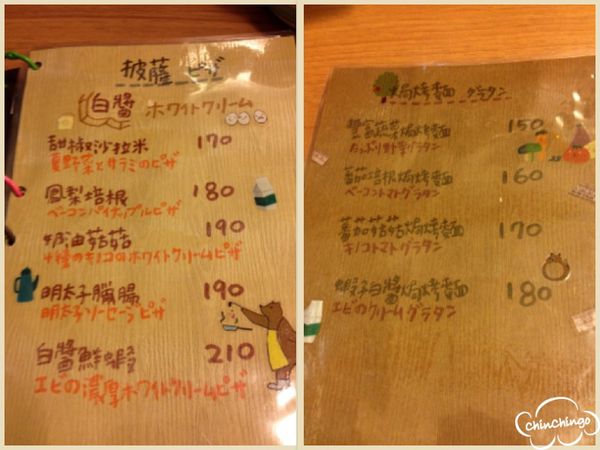 披薩 ピザ
白醬 ホワイトクリーム
甜椒沙拉米 170
夏野菜とサラミのピザ
鳳梨培根 180
ベーコンパイナップルピザ
奶油菇菇 190
十種のキノコのホワイトクリームピザ
明太子臘腸 190
明太子ソーセージピザ
白醬鮮蝦 210
エビの濃厚ホワイトクリームピザ
焗烤麵 グラタン
豐富蔬菜焗烤麵 150
たっぷり野菜グラタン
蕃茄培根焗烤麵 160
ベーコントマトグラタン
蕃茄菇菇焗烤麵 170
キノコトマトグラタン
蝦子白醬焗烤麵 180
エビのクリームグラタン
chinchingo